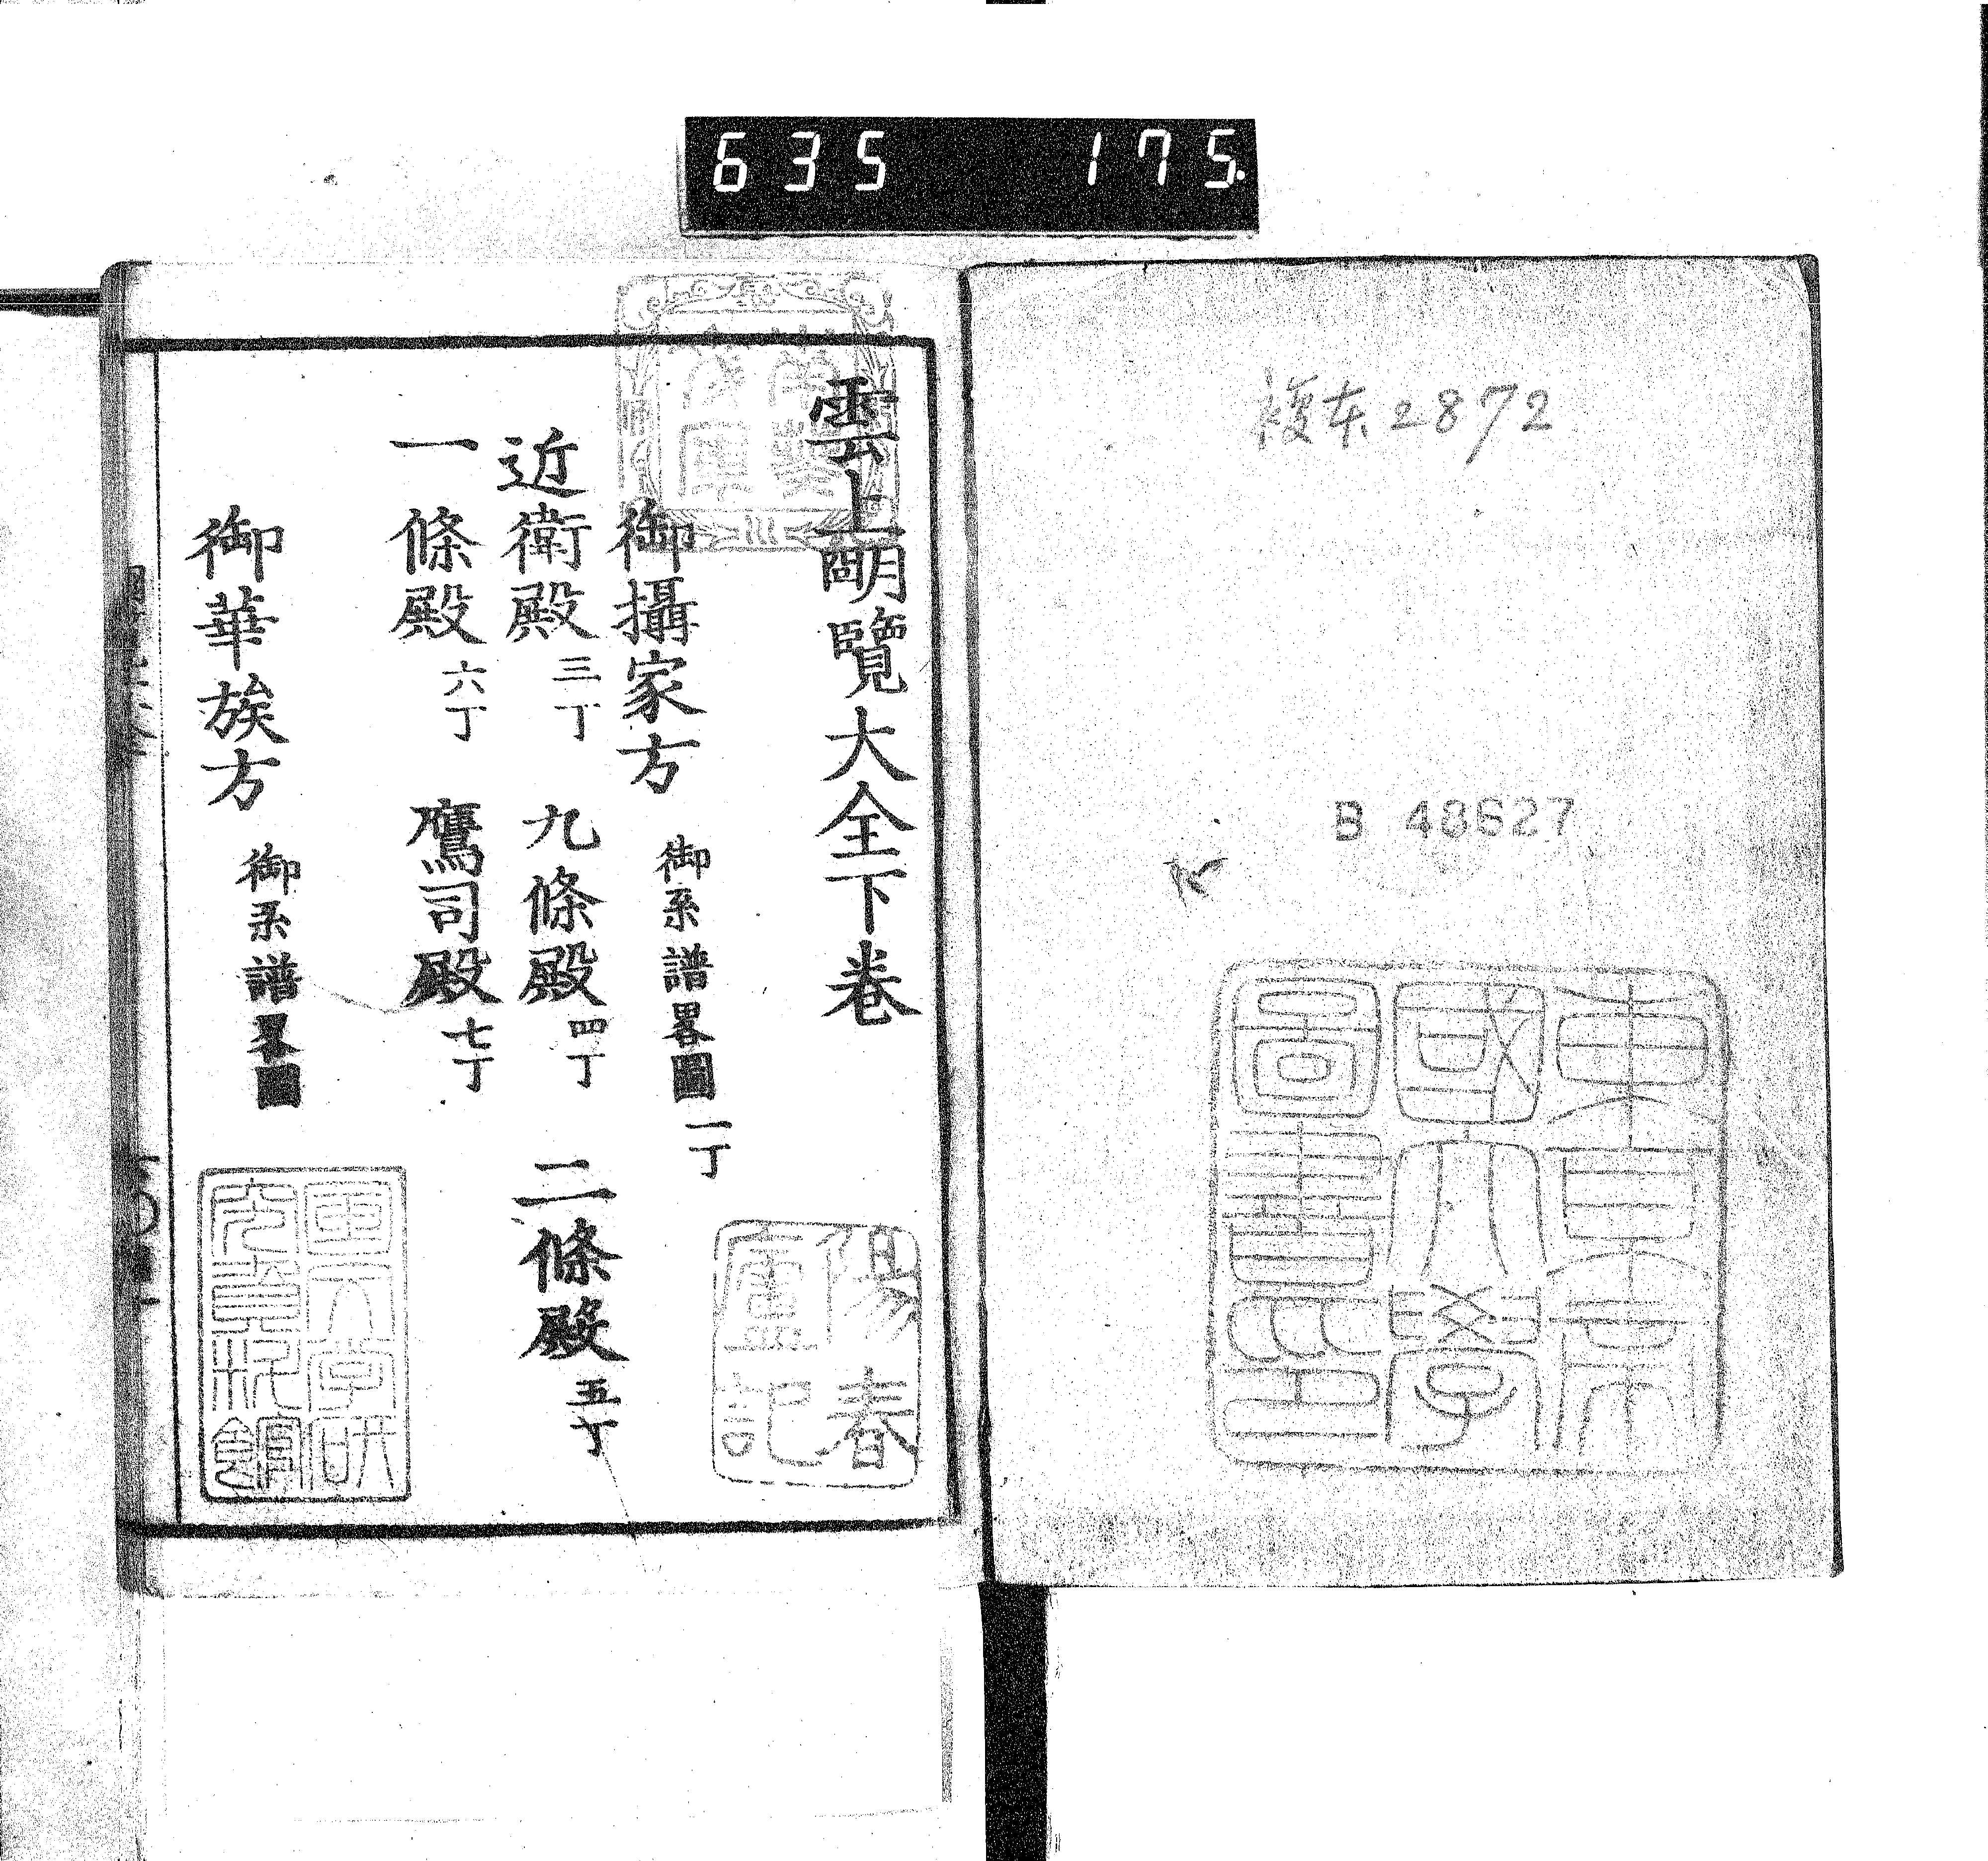 635 175.
複本2872
B 48627
東京帝
國大學
圖書印
雲上明覽大全下巻
御攝家方 御系譜畧圖 一丁
近衛殿 三丁 九條殿 四丁 二條殿 五丁
一條殿 六丁 鷹司殿 七丁
御華族方 御系譜畧圖
陽春
廬記
国文学研
究資料館